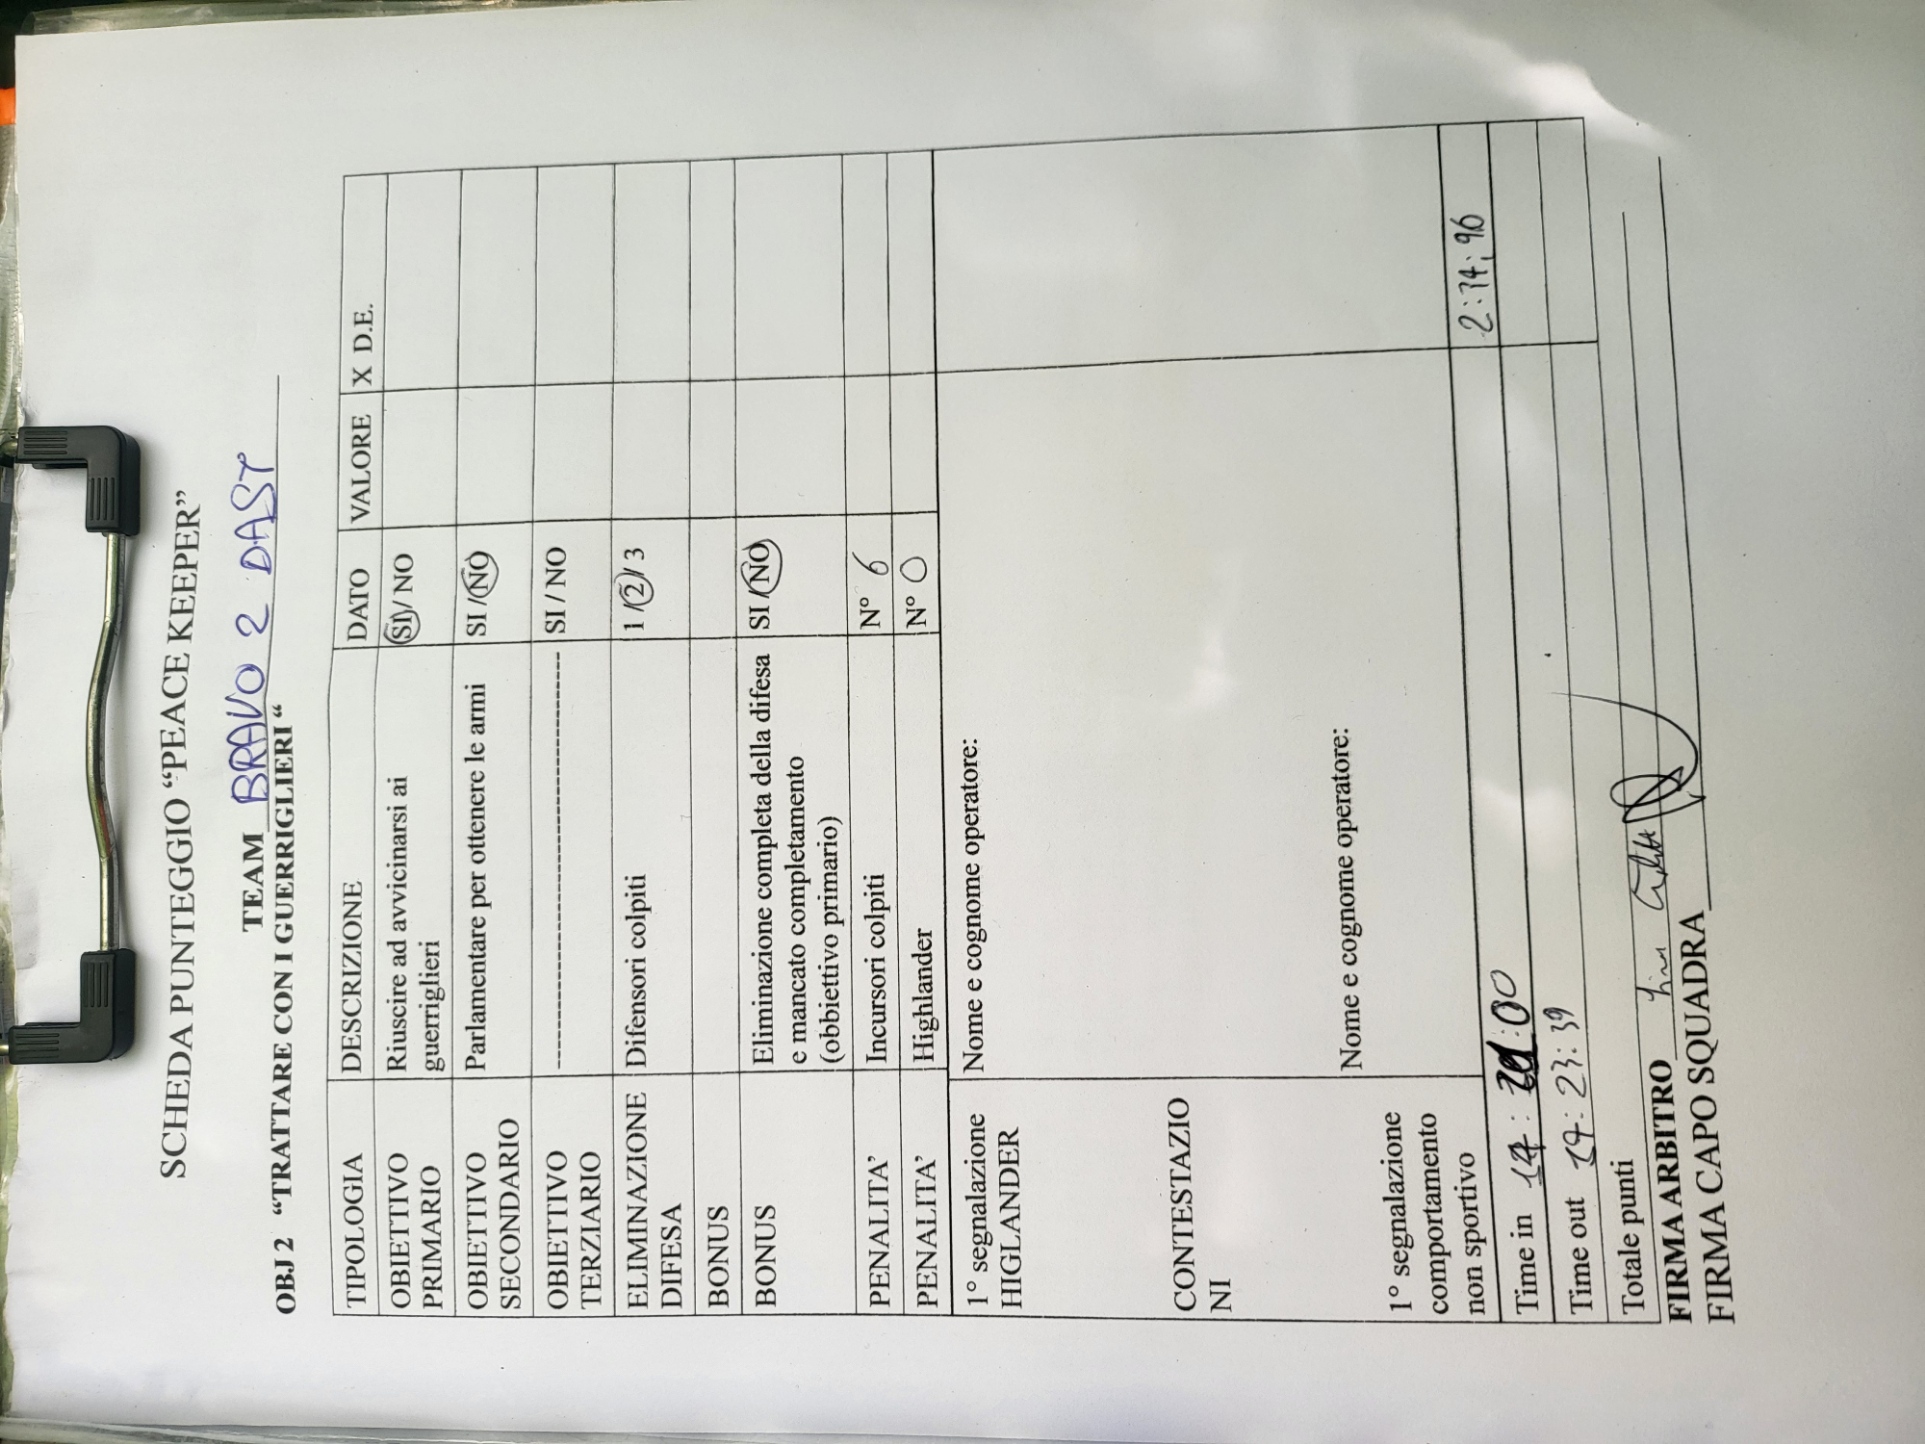 SCHEDA PUNTEGGIO “PEACE KEEPER”
TEAM BRAVO 2 DAST
OBJ 2 “TRATTARE CON I GUERRIGLIERI “
TIPOLOGIA DESCRIZIONE DATO VALORE X D.E.
OBIETTIVO PRIMARIO Riuscire ad avvicinarsi ai guerriglieri SI / NO
OBIETTIVO SECONDARIO Parlamentare per ottenere le armi SI / NO
OBIETTIVO TERZIARIO ------------------------------------------ SI / NO
ELIMINAZIONE DIFESA Difensori colpiti 1 / 2 / 3
BONUS
BONUS Eliminazione completa della difesa e mancato completamento (obbiettivo primario) SI / NO
PENALITA’ Incursori colpiti N° 6
PENALITA’ Highlander N° 0
1° segnalazione HIGLANDER Nome e cognome operatore:
CONTESTAZIO
NI
Nome e cognome operatore:
1° segnalazione
comportamento
non sportivo
2:34:96
Time in
Time out 17:23:39
Totale punti
FIRMA ARBITRO
FIRMA CAPO SQUADRA